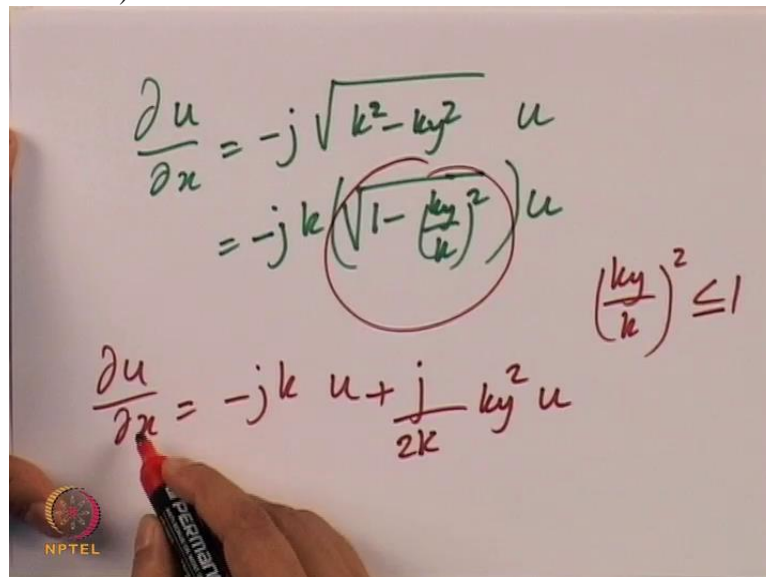 ∂u/∂x = -j √(k² - ky²) u
= -jk (√(1 - (ky/k)²)) u
(ky/k)² ≤ 1
∂u/∂x = -jk u + j/2k ky² u
PERMAN
NPTEL